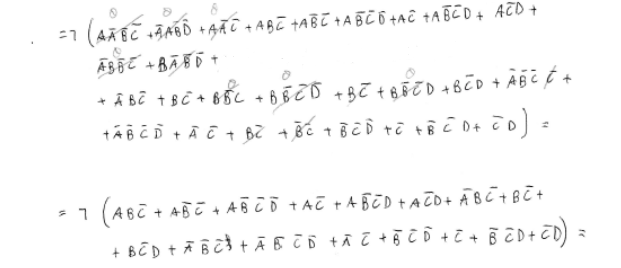 =7 (AĀB̄C̄ + ĀAB̄D̄ + AĀC̄ + ABC̄ + AB̄C̄ + AB̄C̄D̄ + AC̄ + AB̄C̄D + AC̄D +
ĀBB̄C̄ + BĀB̄D̄ +
+ ĀBC̄ + BC̄ + BB̄C + BB̄C̄D̄ + BC̄ + BB̄C̄D + BC̄D + ĀB̄C̄ +
+ ĀB̄C̄D̄ + ĀC̄ + BC̄ + B̄C̄ + B̄C̄D̄ + C̄ + B̄C̄D + C̄D) =
= 7 (ABC̄ + AB̄C̄ + AB̄C̄D̄ + AC̄ + AB̄C̄D + AC̄D + ĀBC̄ + BC̄ +
+ BC̄D + ĀB̄C̄ + ĀB̄C̄D̄ + ĀC̄ + B̄C̄D̄ + C̄ + B̄C̄D + C̄D) =